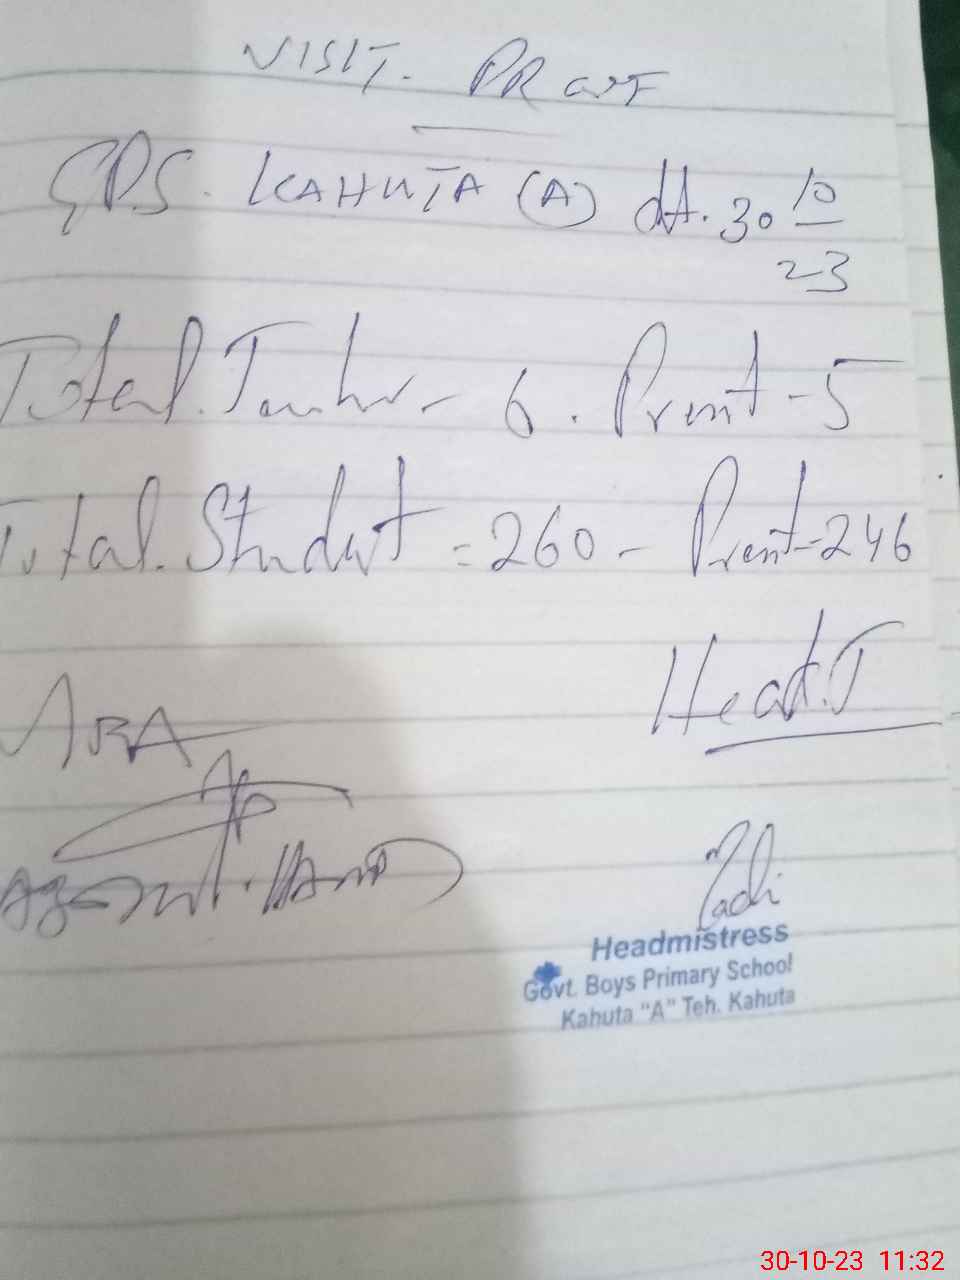 VISIT. PROVF
GPS. KAHUTA (A) dt. 30 10/23
Total. Teacher - 6. Present - 5
Total. Student = 260 - Present - 246
Head. T
Headmistress
Govt. Boys Primary School
Kahuta "A" Teh. Kahuta
30-10-23 11:32